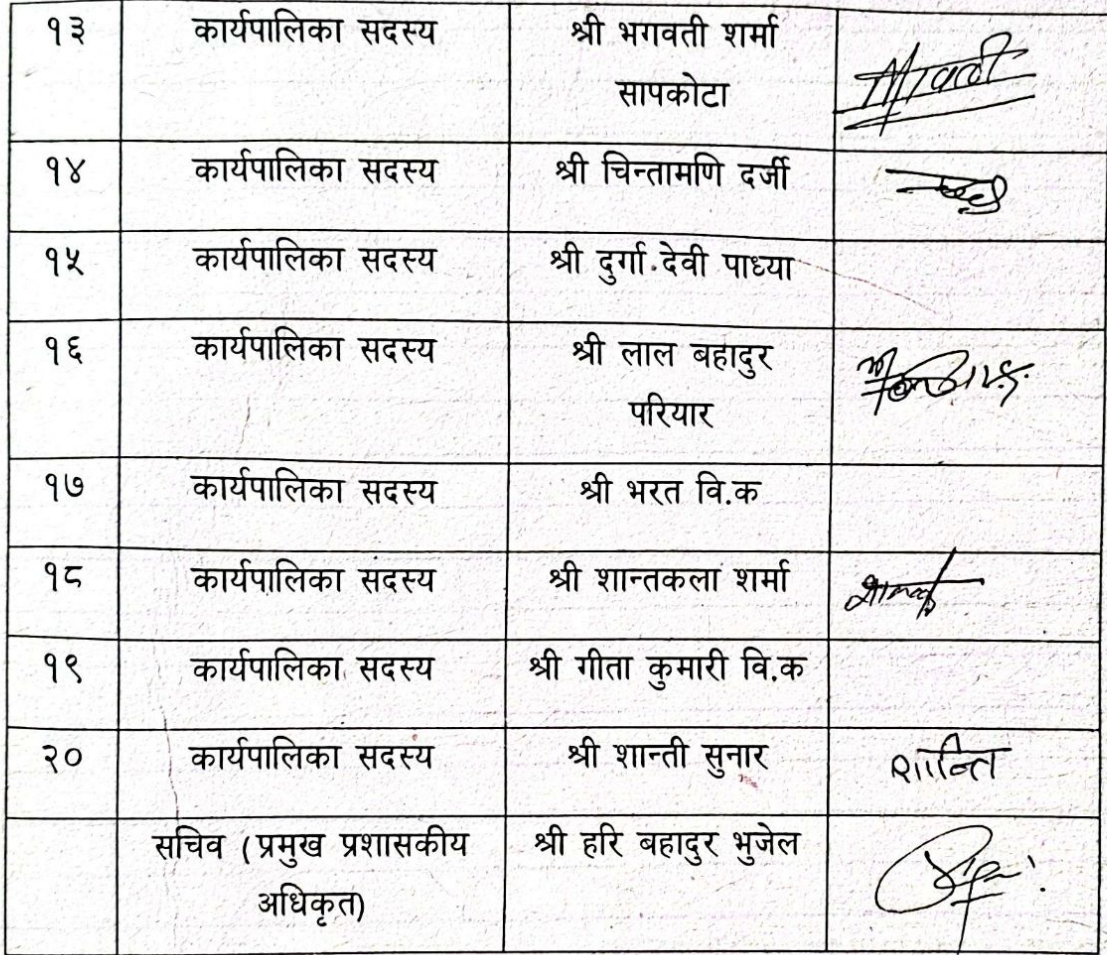 १३ कार्यपालिका सदस्य श्री भगवती शर्मा
सापकोटा
१४ कार्यपालिका सदस्य श्री चिन्तामणि दर्जी
१५ कार्यपालिका सदस्य श्री दुर्गा देवी पाध्या
१६ कार्यपालिका सदस्य श्री लाल बहादुर
परियार
१७ कार्यपालिका सदस्य श्री भरत वि.क
१८ कार्यपालिका सदस्य श्री शान्तकला शर्मा
१९ कार्यपालिका सदस्य श्री गीता कुमारी वि.क
२० कार्यपालिका सदस्य श्री शान्ती सुनार शान्ति
सचिव (प्रमुख प्रशासकीय श्री हरि बहादुर भुजेल
अधिकृत)